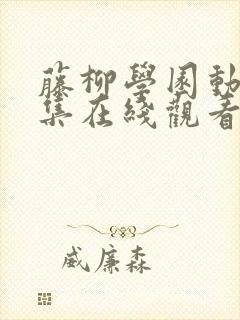 藤柳學園動
集在綫觀看
威廉森